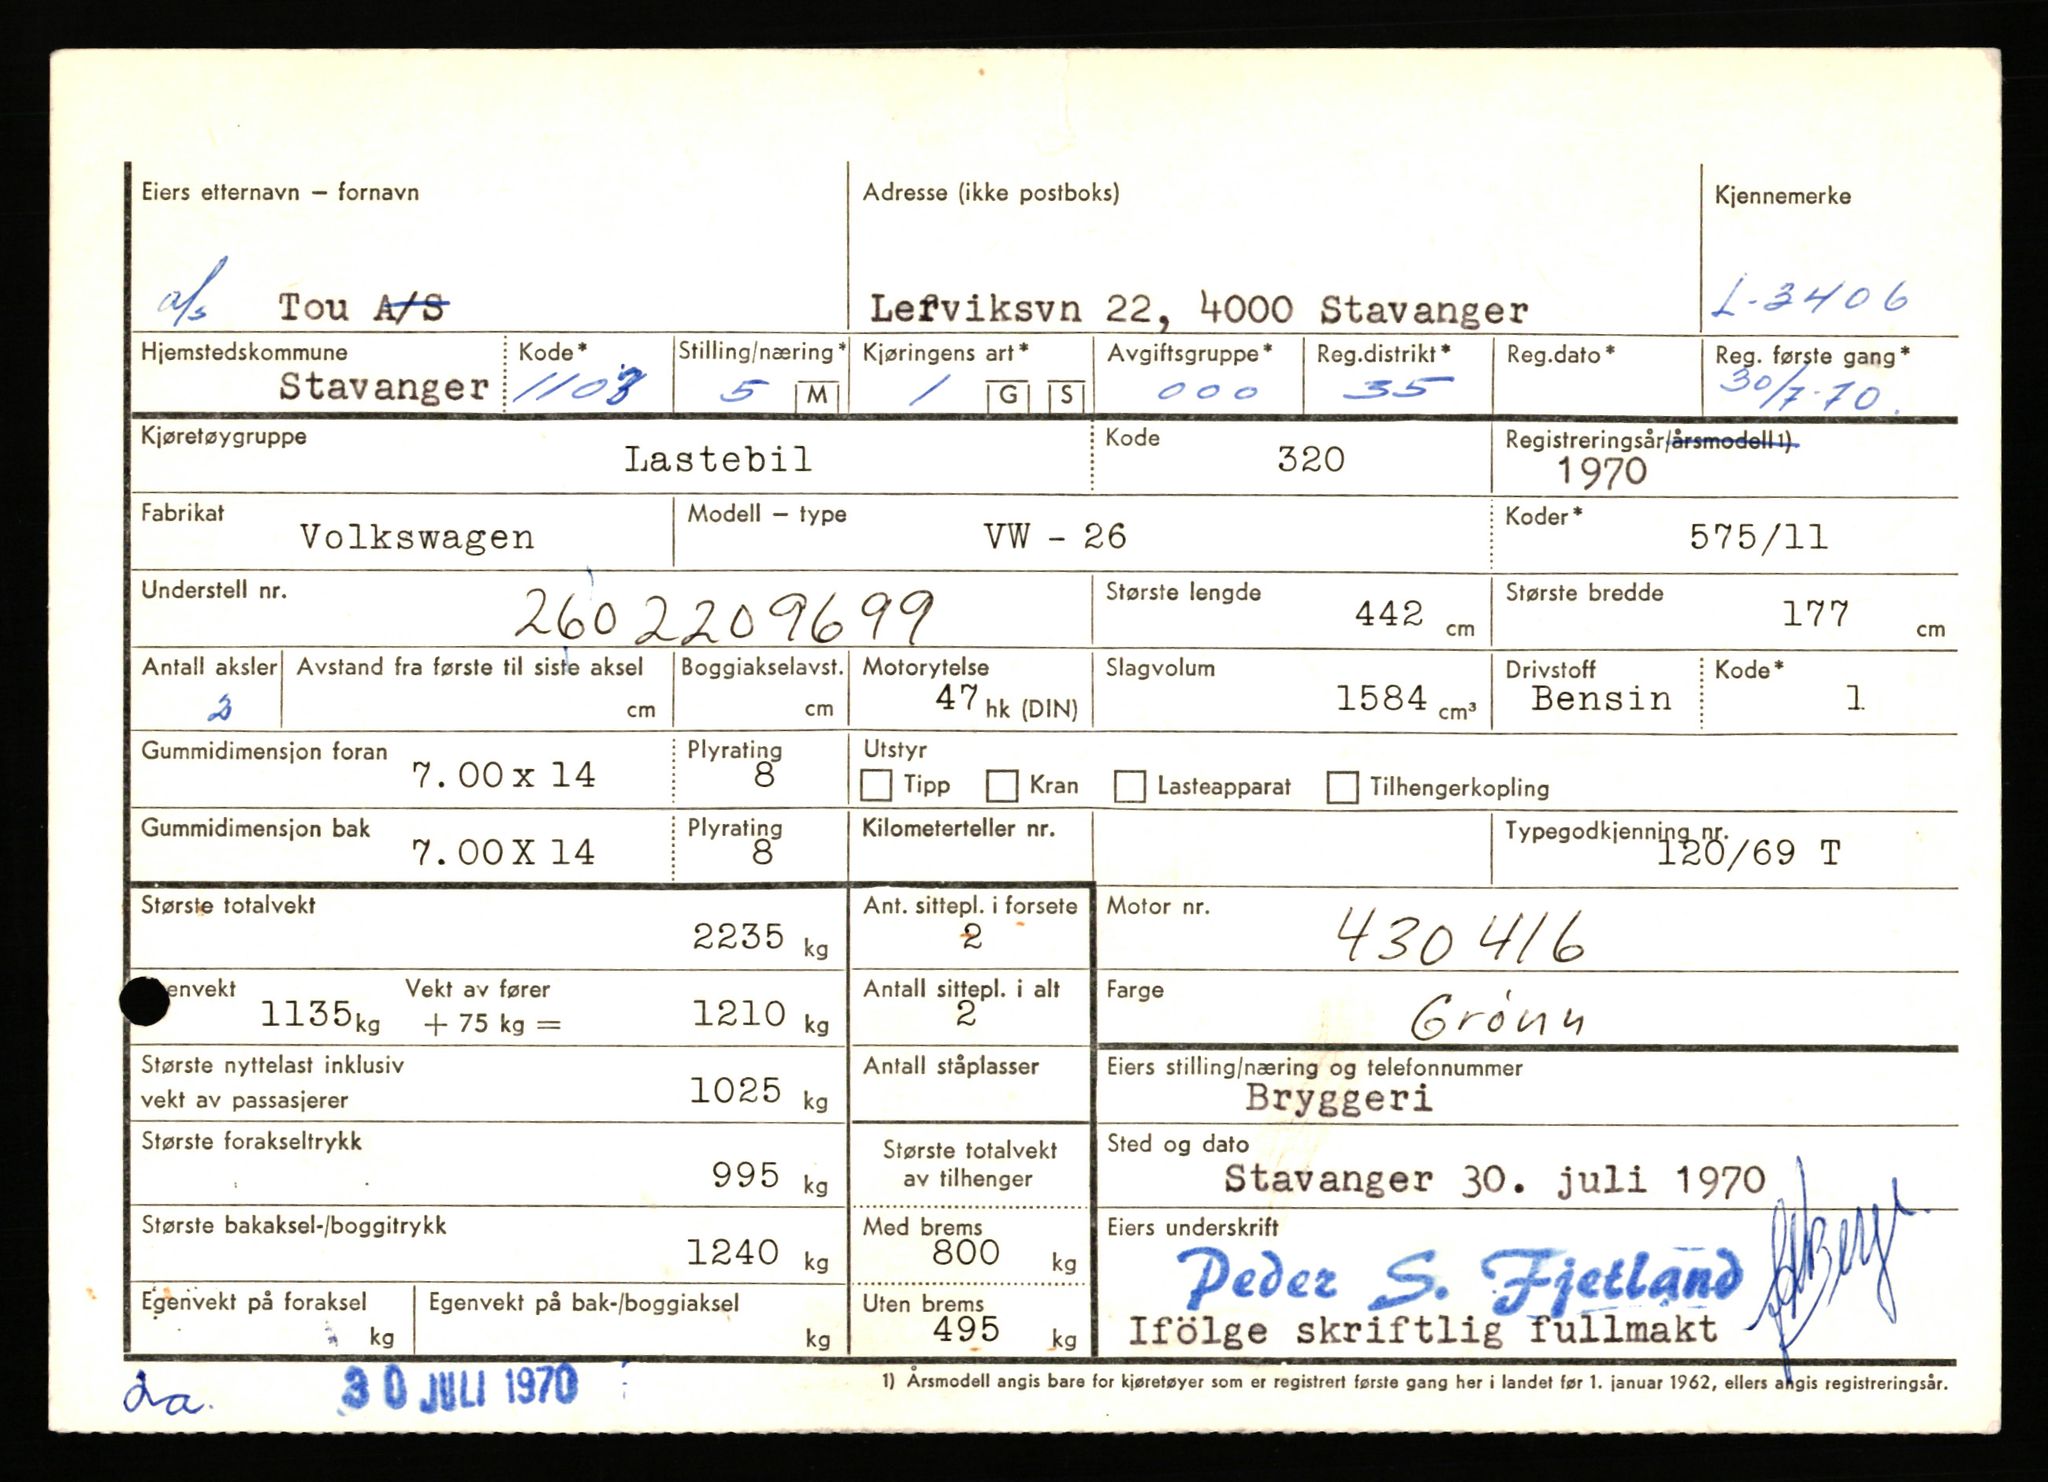 Eiers etternavn – fornavn
a/s Tou A/S
Adresse (ikke postboks)
Lerviksvn 22, 4000 Stavanger
Kjennemerke
L-3406
Hjemstedskommune
Stavanger
Kode*
1103
Stilling/næring*
5 M
Kjøringens art*
1 G S
Avgiftsgruppe*
000
Reg.distrikt*
35
Reg.dato*
Reg. første gang*
30/7-70.
Kjøretøygruppe
Lastebil
Kode
320
Registreringsår/årsmodell 1)
1970
Fabrikat
Volkswagen
Modell – type
VW - 26
Koder*
575/11
Understell nr.
2602209699
Største lengde
442 cm
Største bredde
177 cm
Antall aksler
2
Avstand fra første til siste aksel
cm
Boggiakselavst.
cm
Motorytelse
47 hk (DIN)
Slagvolum
1584 cm³
Drivstoff
Bensin
Kode*
1
Gummidimensjon foran
7.00 x 14
Plyrating
8
Utstyr
Tipp Kran Lasteapparat Tilhengerkopling
Gummidimensjon bak
7.00 X 14
Plyrating
8
Kilometerteller nr.
Typegodkjenning nr.
120/69 T
Største totalvekt
2235 kg
Ant. sittepl. i forsete
2
Motor nr.
430416
envekt
1135 kg
Vekt av fører
+ 75 kg =
1210 kg
Antall sittepl. i alt
2
Farge
Grönn
Største nyttelast inklusiv
vekt av passasjerer
1025 kg
Antall ståplasser
Eiers stilling/næring og telefonnummer
Bryggeri
Største forakseltrykk
995 kg
Største totalvekt
av tilhenger
Sted og dato
Stavanger 30. juli 1970
Største bakaksel-/boggitrykk
1240 kg
Med brems
800 kg
Eiers underskrift
Peder S. Fjetland
Ifölge skriftlig fullmakt
Egenvekt på foraksel
kg
Egenvekt på bak-/boggiaksel
kg
Uten brems
495 kg
30 JULI 1970
1) Årsmodell angis bare for kjøretøyer som er registrert første gang her i landet før 1. januar 1962, ellers angis registreringsår.